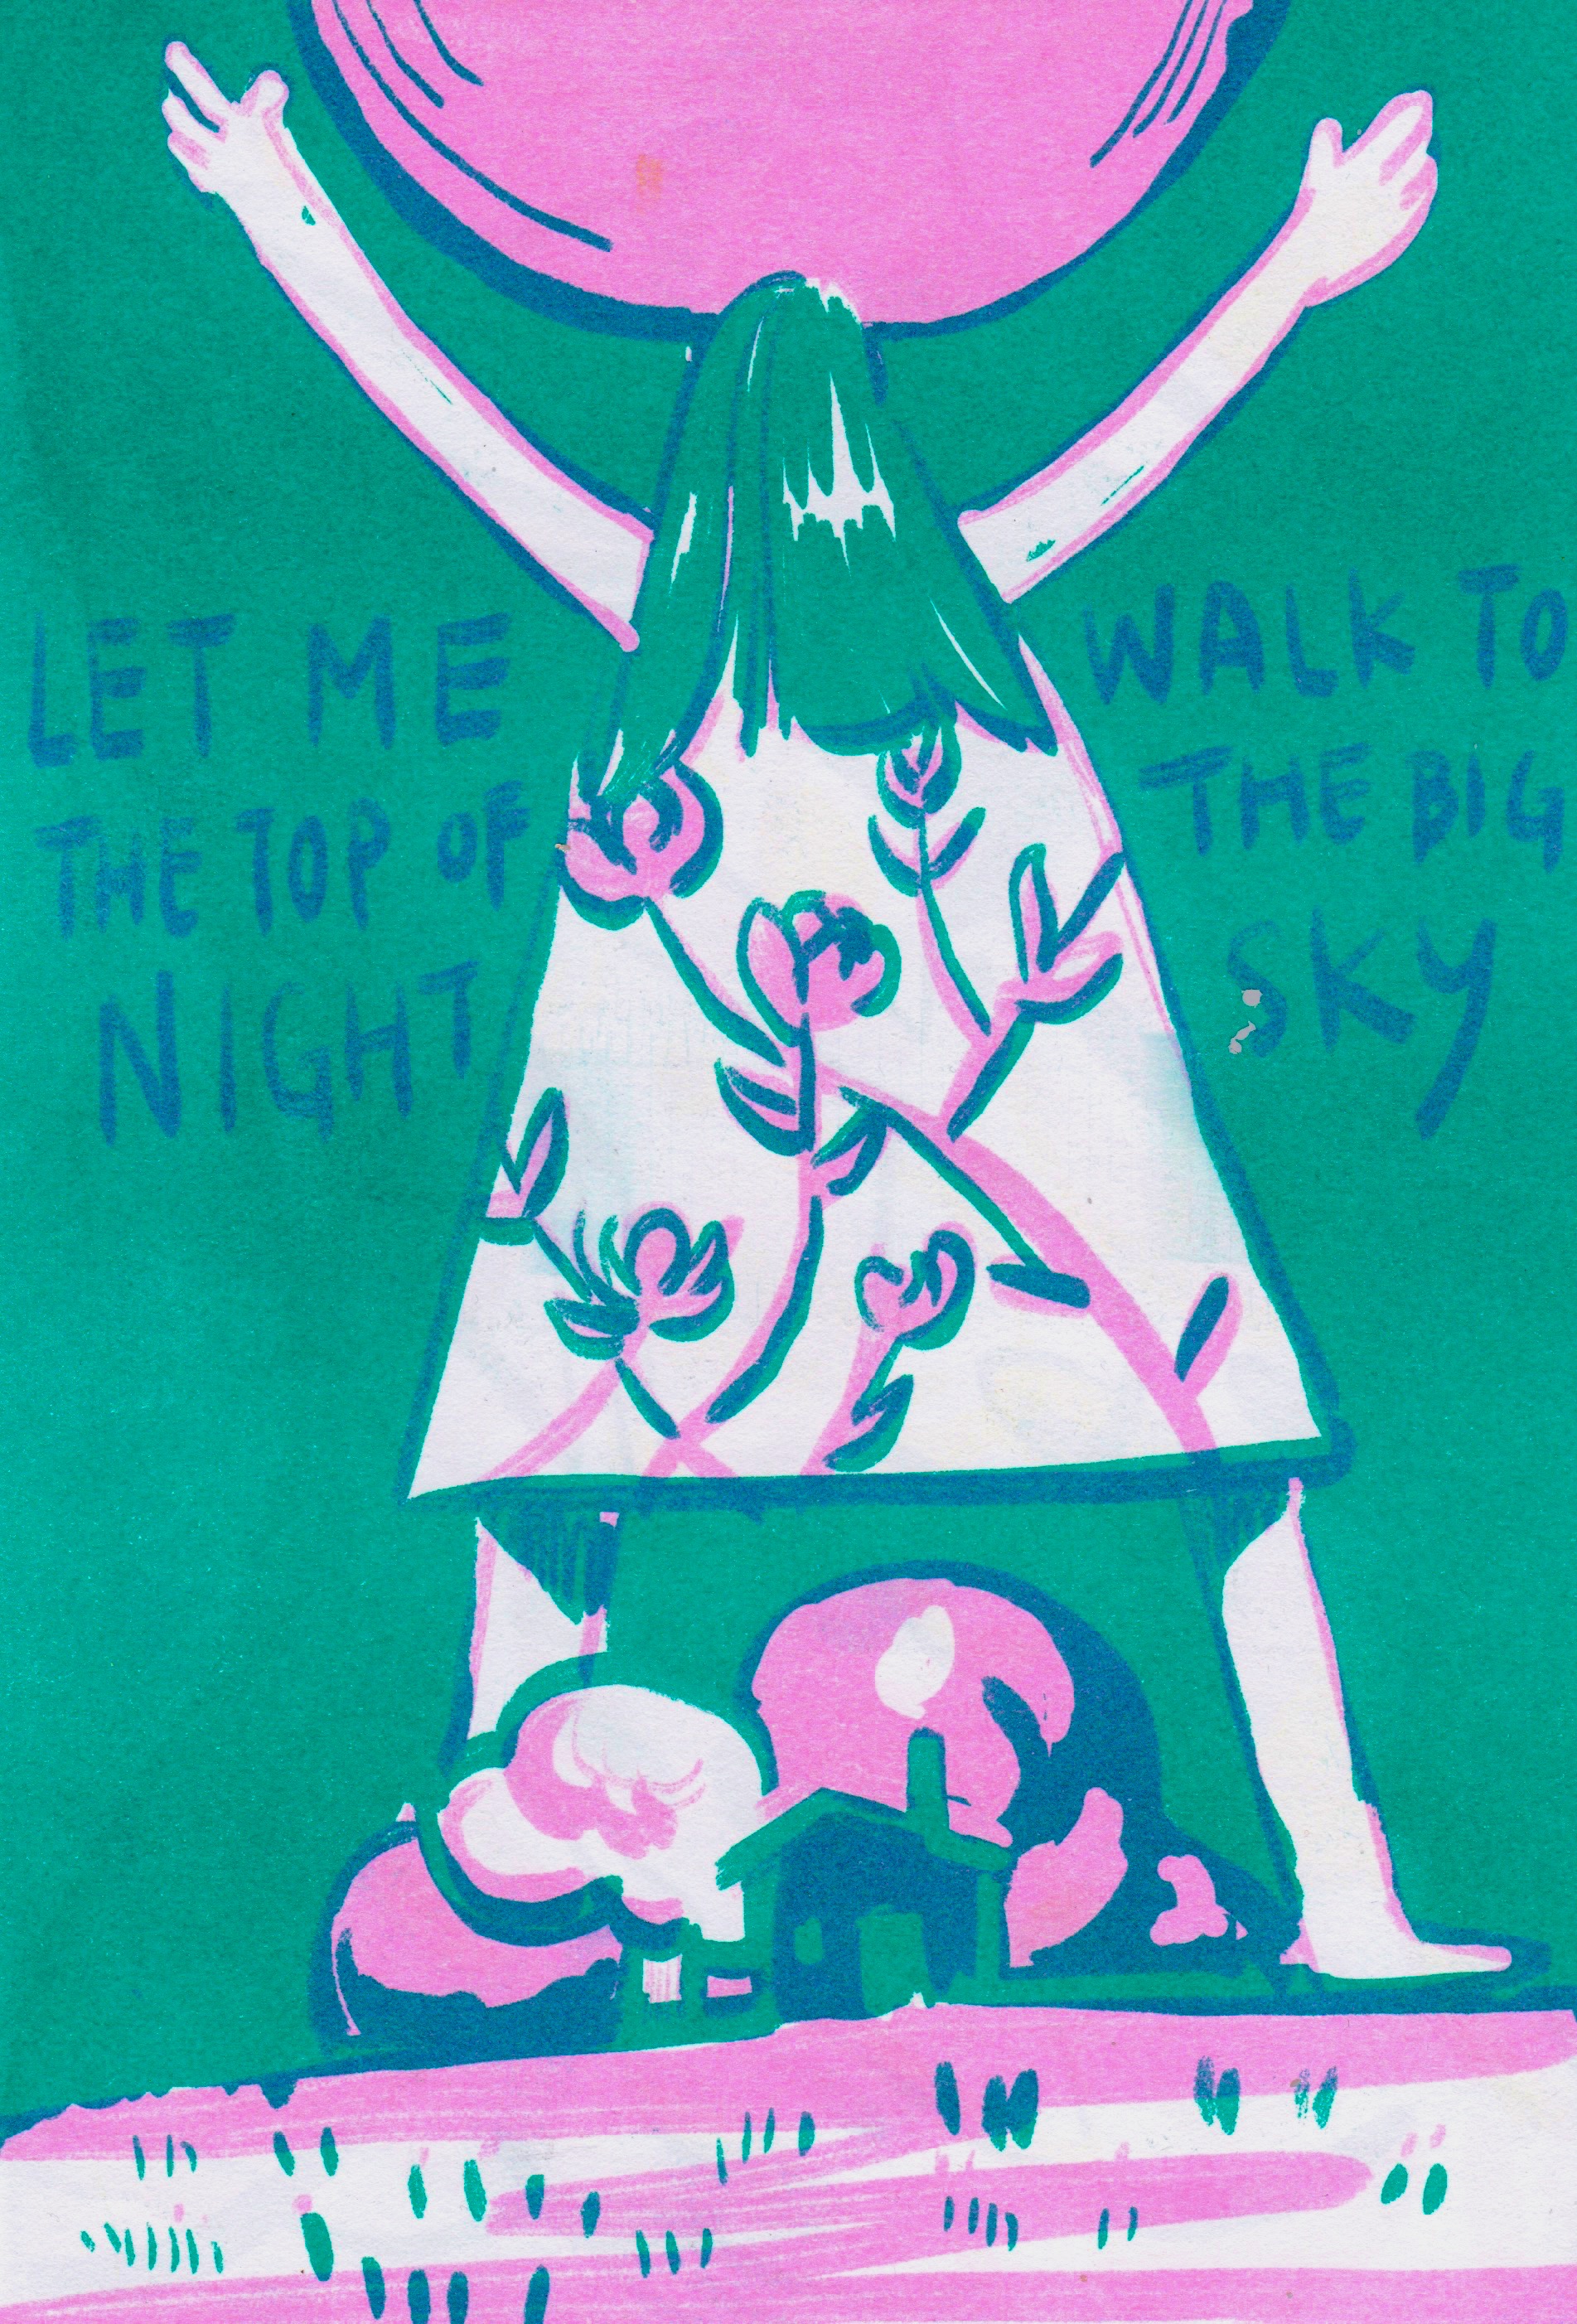 LET ME WALK TO
THE TOP OF THE BIG
NIGHT SKY